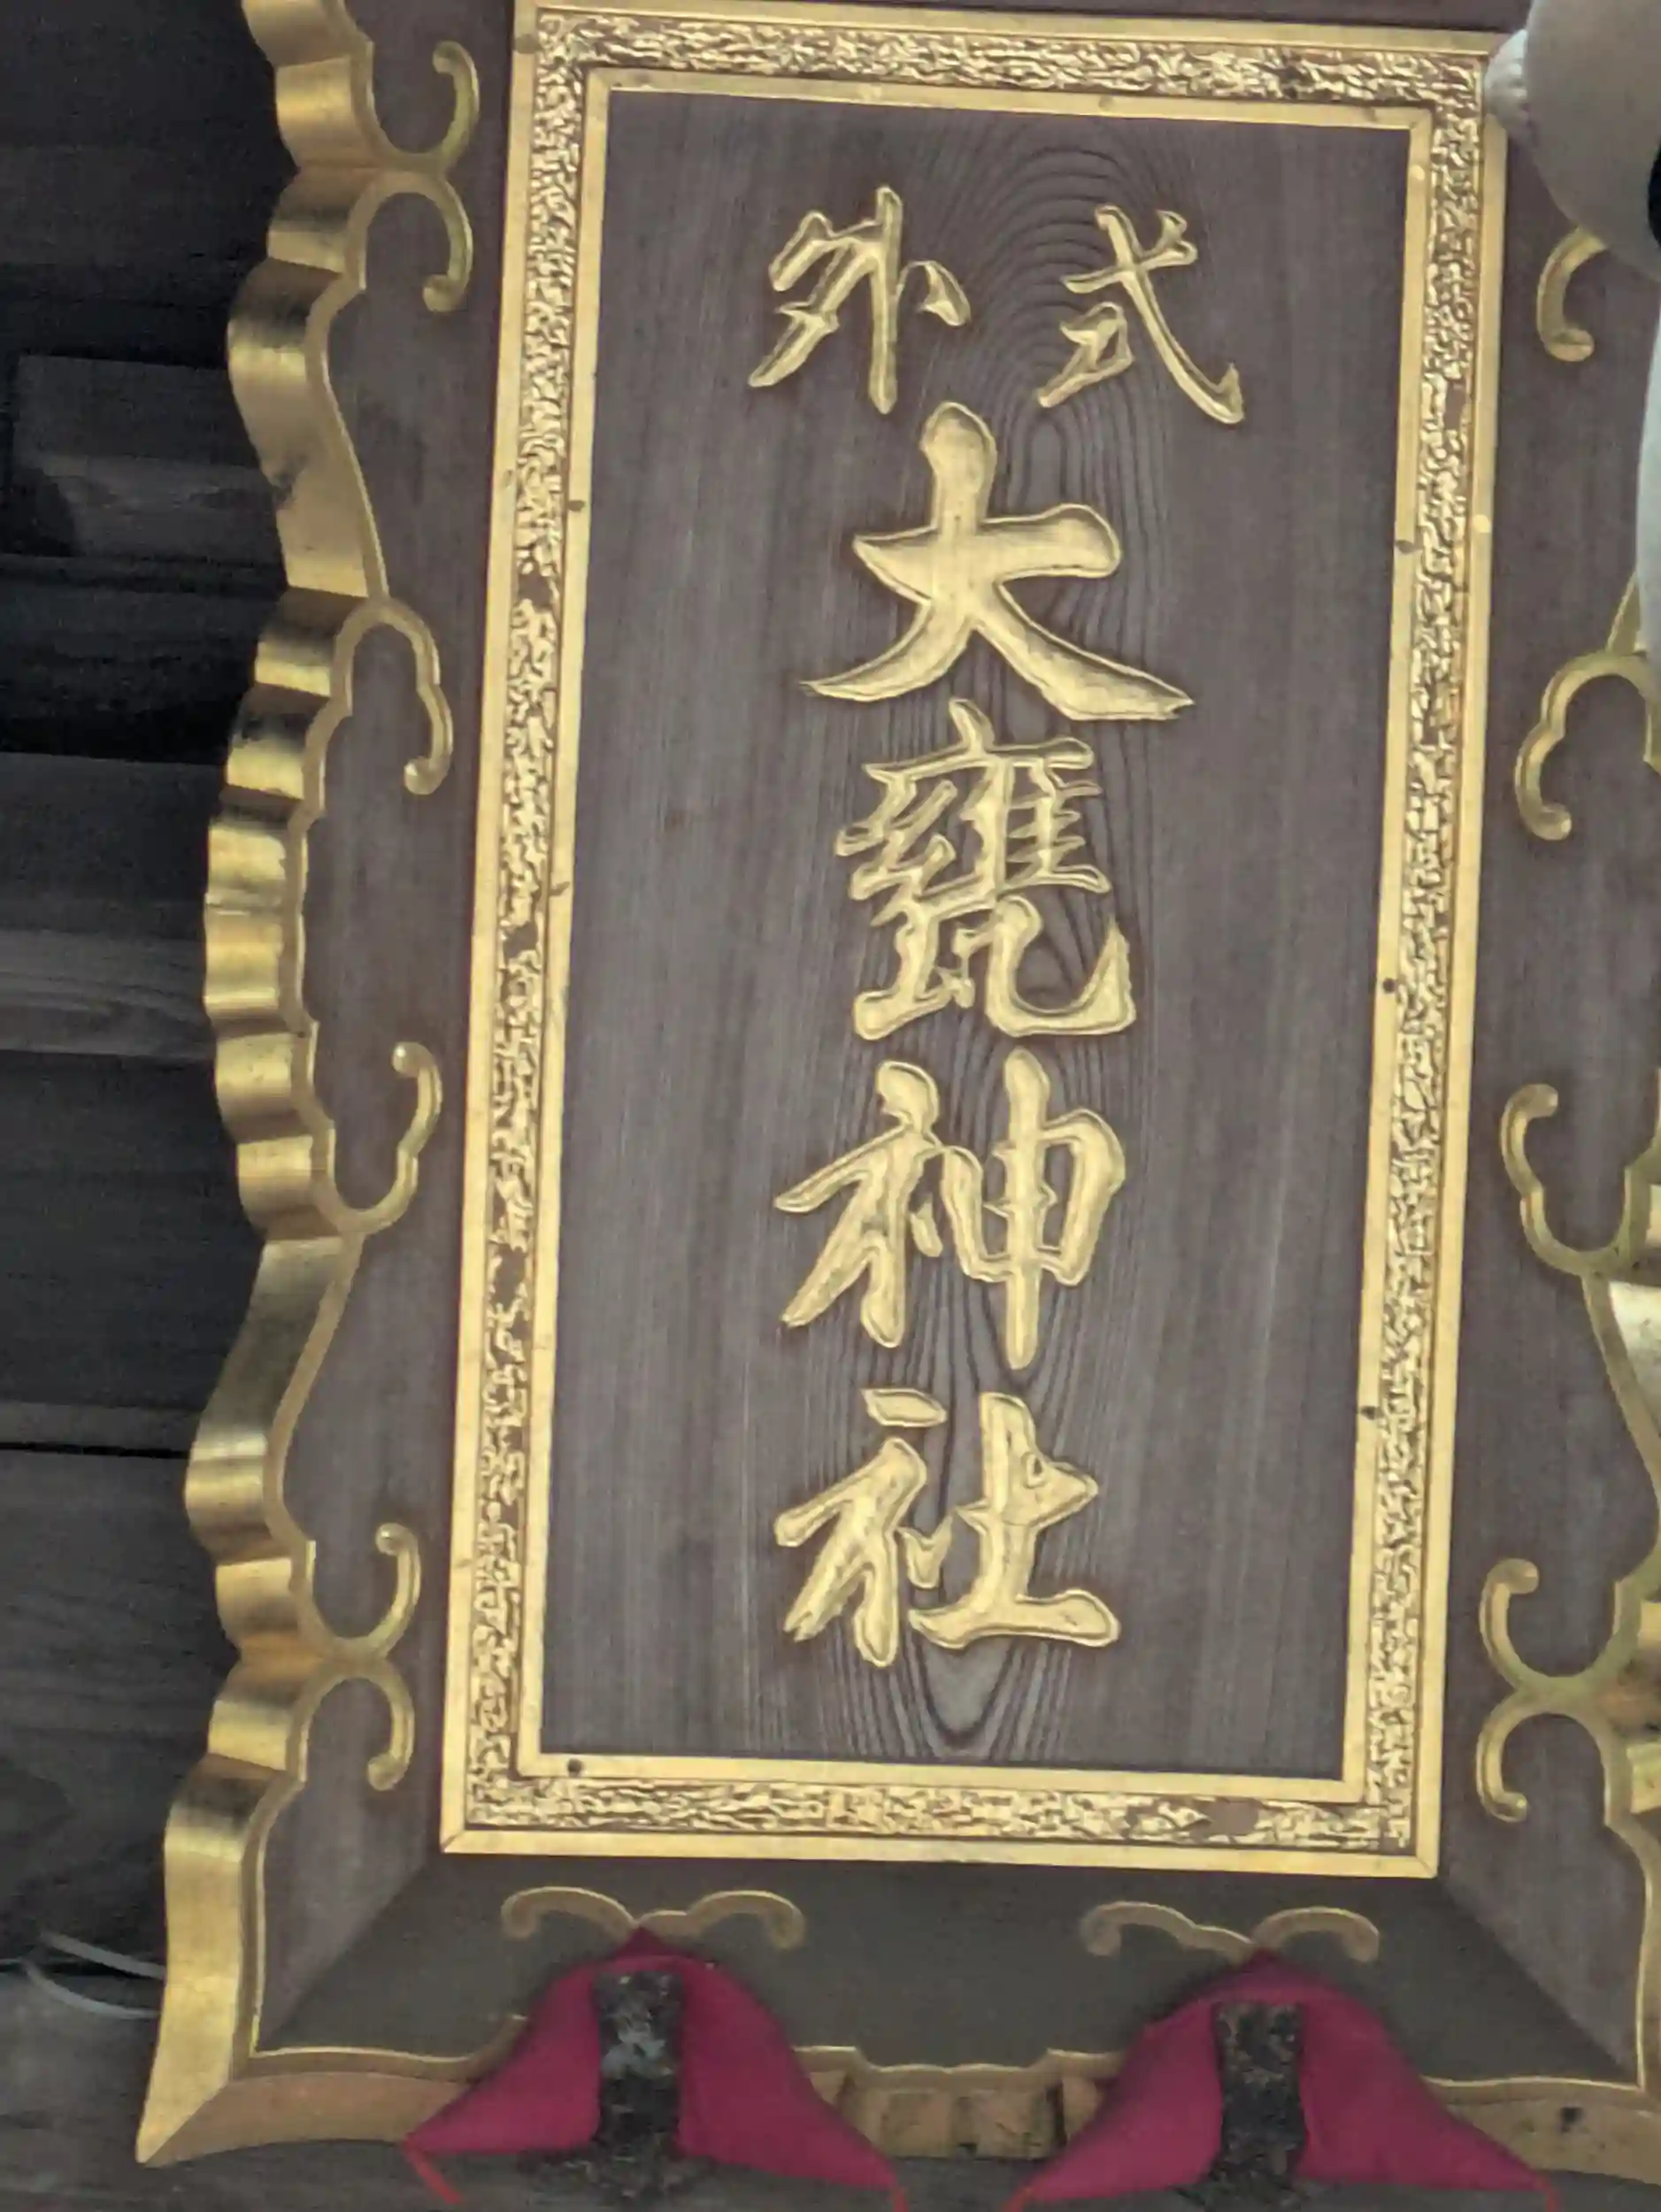 式外
大甕神社